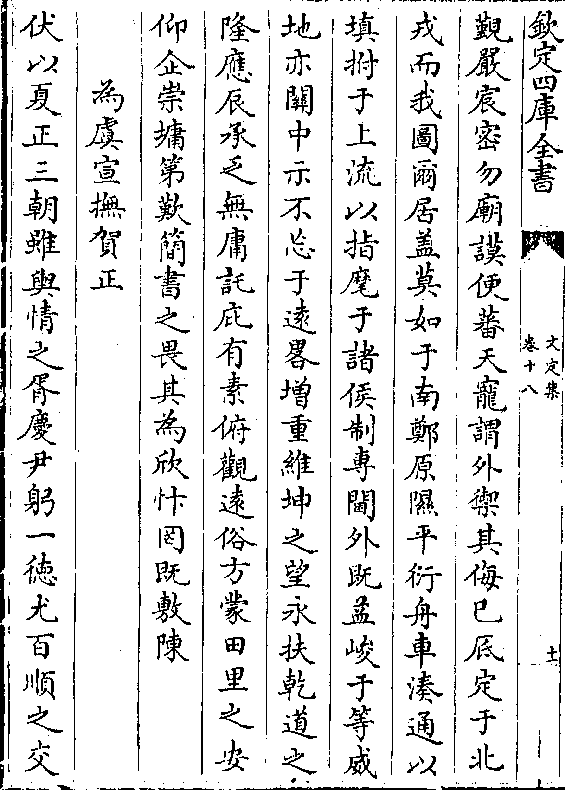 欽定四庫全書
文定集
卷十八
十一
觐嚴宸密勿廟謨便蕃天寵謂外禦其侮已厎定于北
戎而我圖爾居盖莫如于南鄭原隰平衍舟車湊通以
填拊于上流以指麾于諸侯制専閫外既益峻于等威
地亦關中示不忘于逺畧增重維坤之望永扶乾道之
隆應辰承乏無庸託庇有素俯觀逺俗方蒙田里之安
仰企崇墉第歎簡書之畏其為欣忭罔既敷陳
為虞宣撫賀正
伏以夏正三朝雖輿情之胥慶尹躬一徳尤百順之交